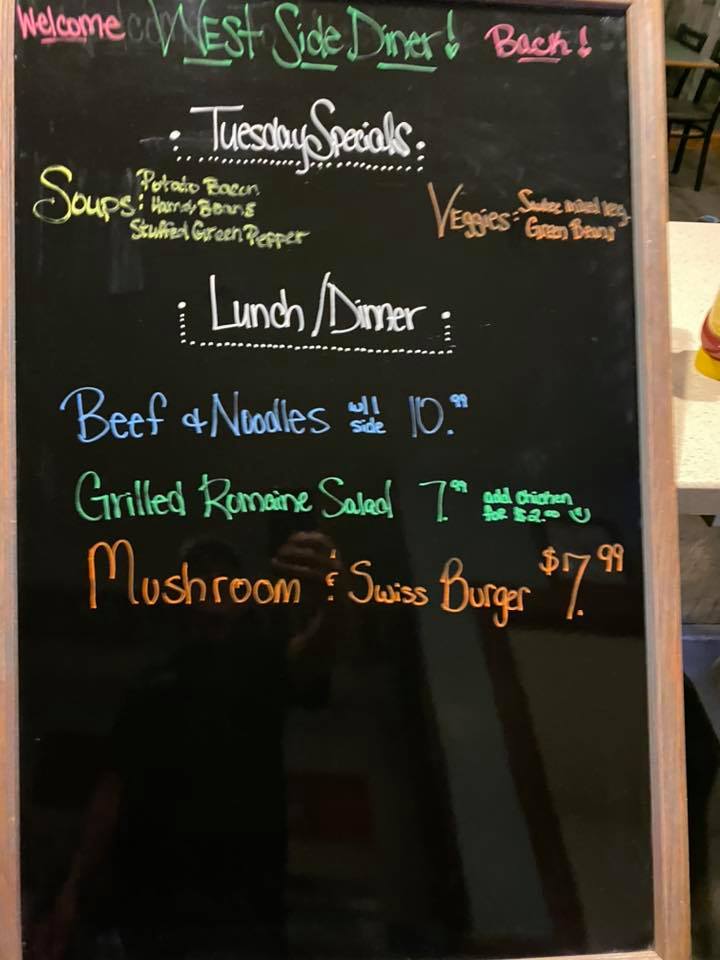 Welcome West Side Diner! Back!
Tuesday Specials
Soups: Potato Bacon
Ham & Beans
Stuffed Green Pepper
Veggies: mixed veg.
Green Beans
Lunch/Dinner
Beef & Noodles w/1 side 10.99
Grilled Romaine Salad 7.99 add chicken for $2.00
Mushroom & Swiss Burger $7.99